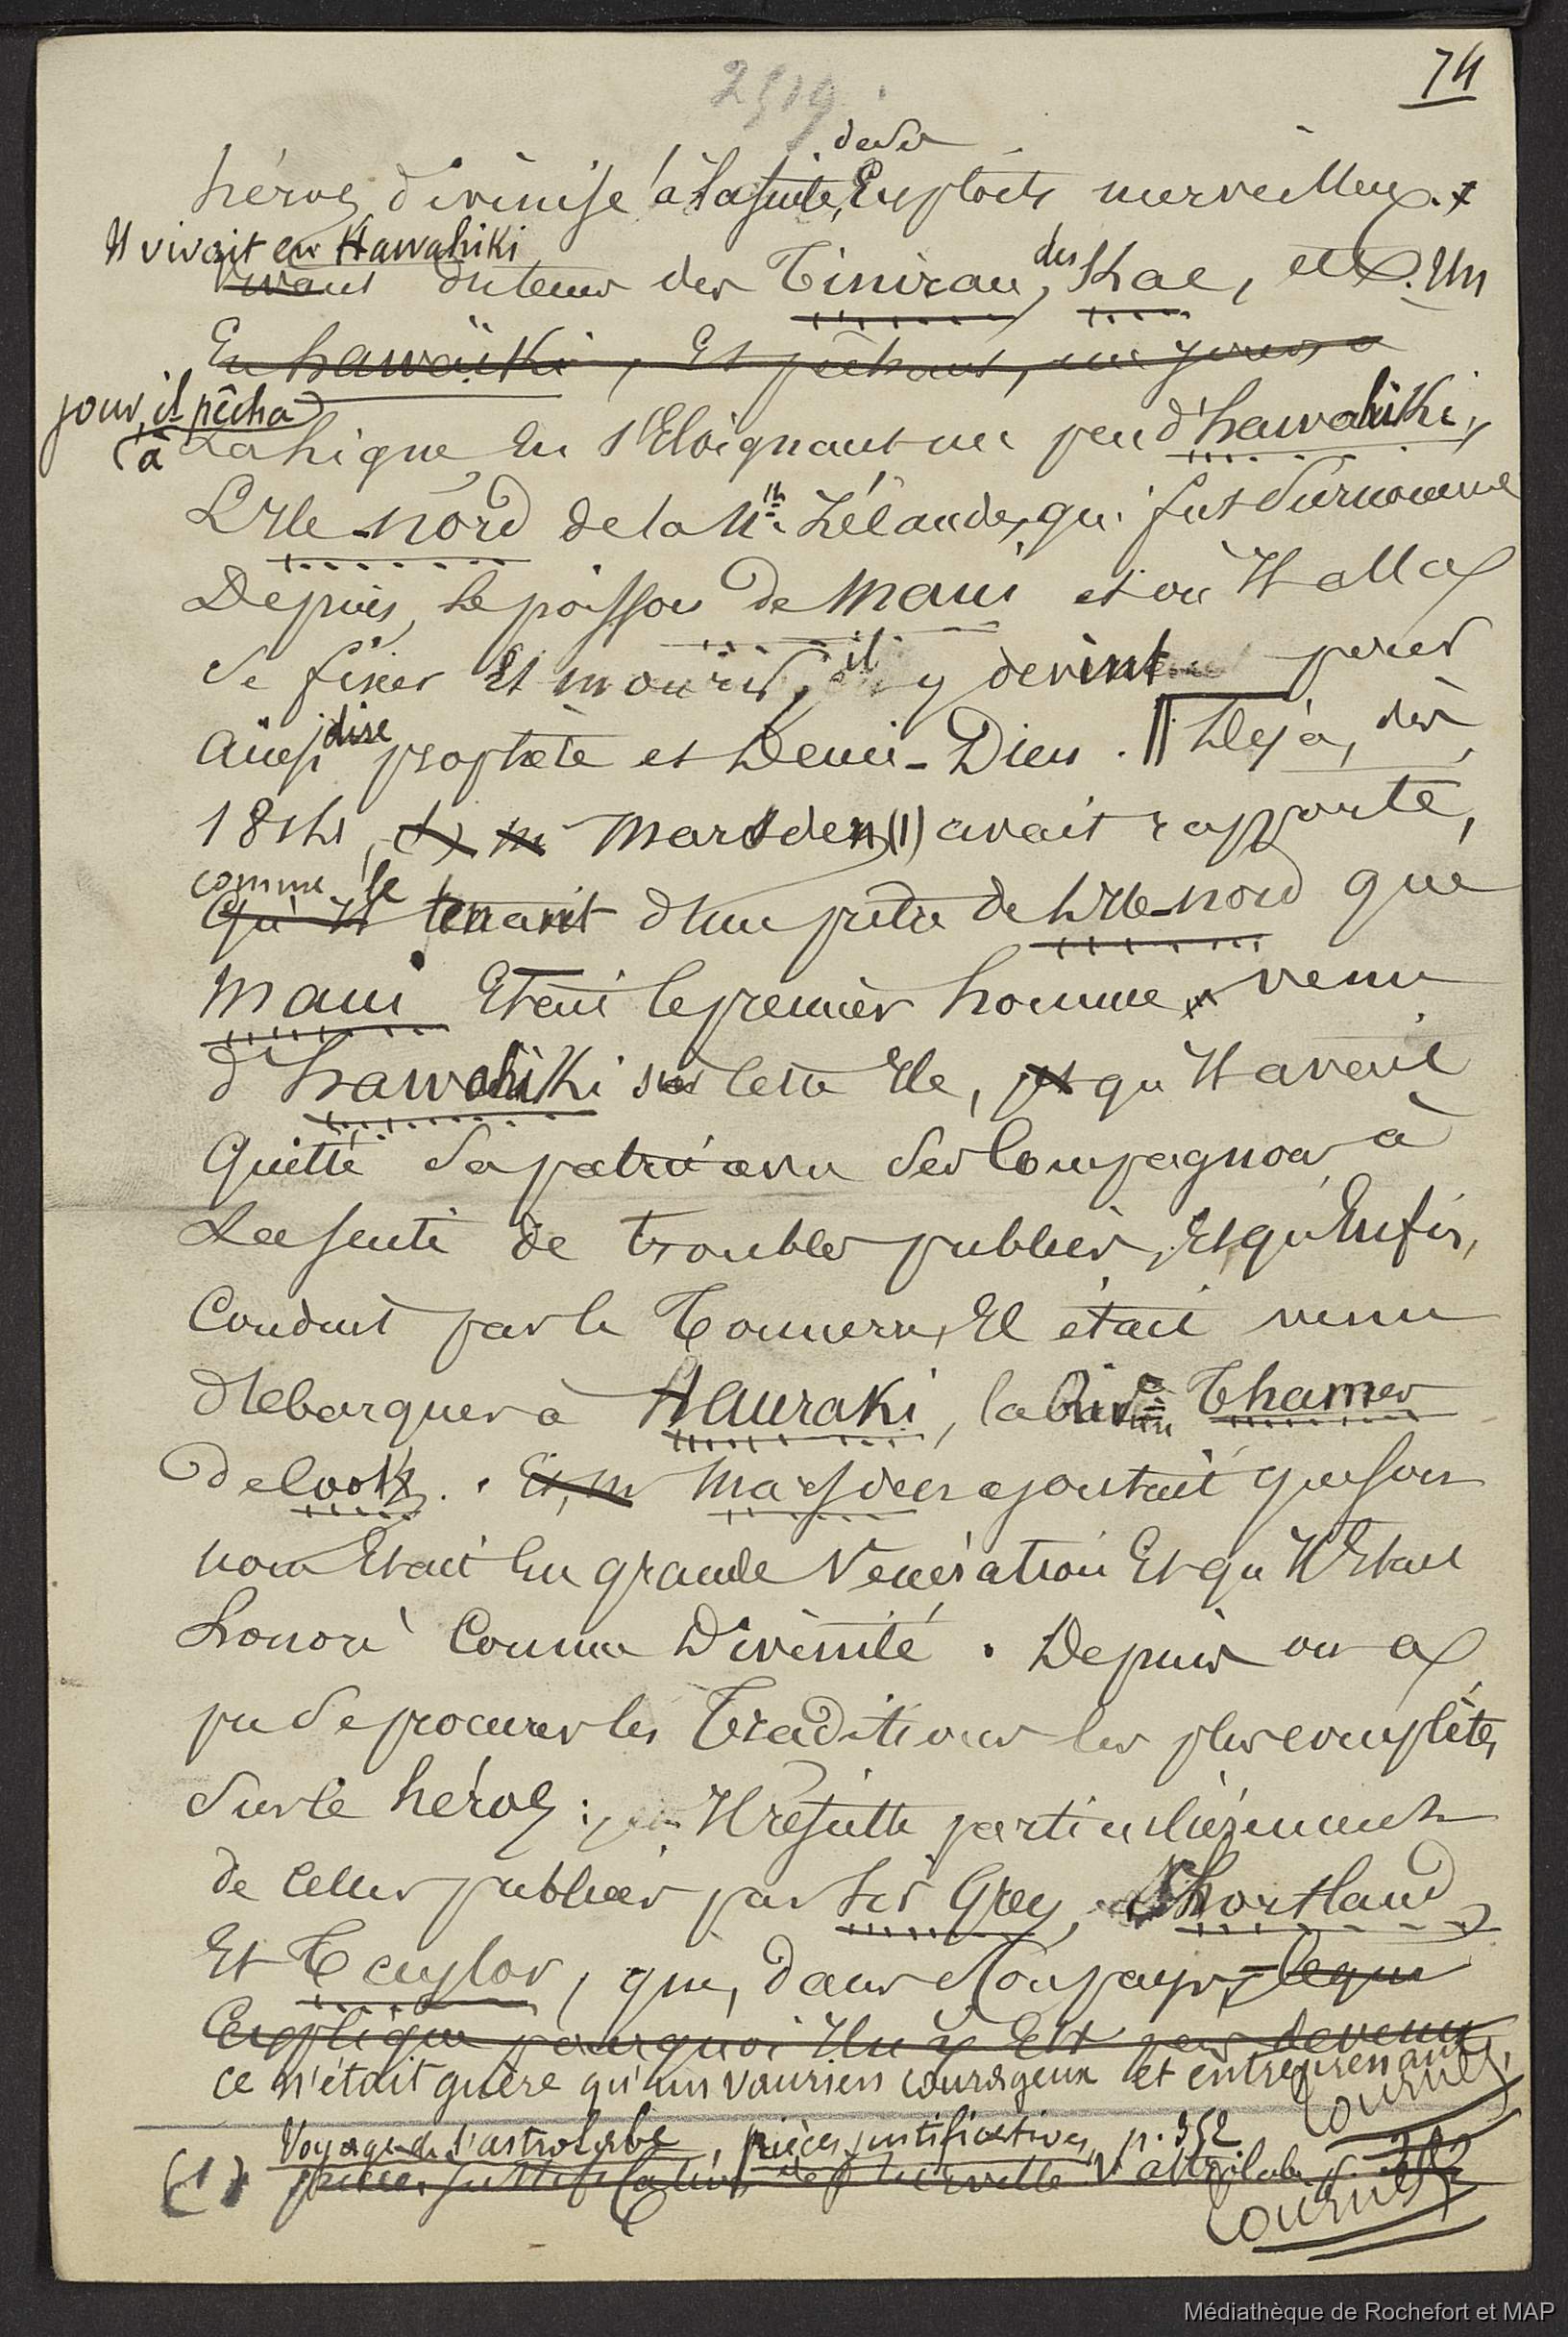 74
2519
de ses
héros divinisé à la suite, Exploits merveilleux. +
Il vivait en Hawahiki
vivant du temps des Tinirau, des Kae, etc. Un
En hawaïki, Et pêchant, un jour, à
jour, il pêcha
(à La ligne, En s'Eloignant un peu d'hawahiki,
L'Ile-nord de la Nlle Zélande, qui fut surnommée
Depuis, Le poisson de Maui et où Il alla
se fixer Et mourir, il y devint pour
Ainsi dire prophète et Demi-Dieu. || Déjà, dès
1814, Marsden (1) avait rapporté,
comme le
qu'il tenait d'un prêtre de L'Ile-nord que
Maui Etait le premier homme venu
d'hawahiki sur Cette Ile, et qu'Il avait
Quitté Sa patrie avec Ses Compagnons à
La suite de troubles publics, Et qu'Enfin,
Conduit par le Tonnerre, Il était venu
débarquer à Hauraki, la Thames
de Cook. Et, M Marsden ajoutait que son
nom Etait En grande Vénération Et qu'Il Etait
honoré Comme Divinité. Depuis on a
pu Se procurer les Traditions les plus complètes
Sur le héros : Il résulte particulièrement
de Celles publiées par Sir Grey, Shortland
Et Taylor, que, dans Son pays, ce qui
Explique pourquoi Il n'y Est pas devenu
ce n'était guère qu'un vaurien courageux et entreprenant,
tournez
Voyage de l'astrolabe, pièces justificatives, p. 352
(1) pièces justificatives de d'urville V. astrolabe p. 352
tournez
Médiathèque de Rochefort et MAP